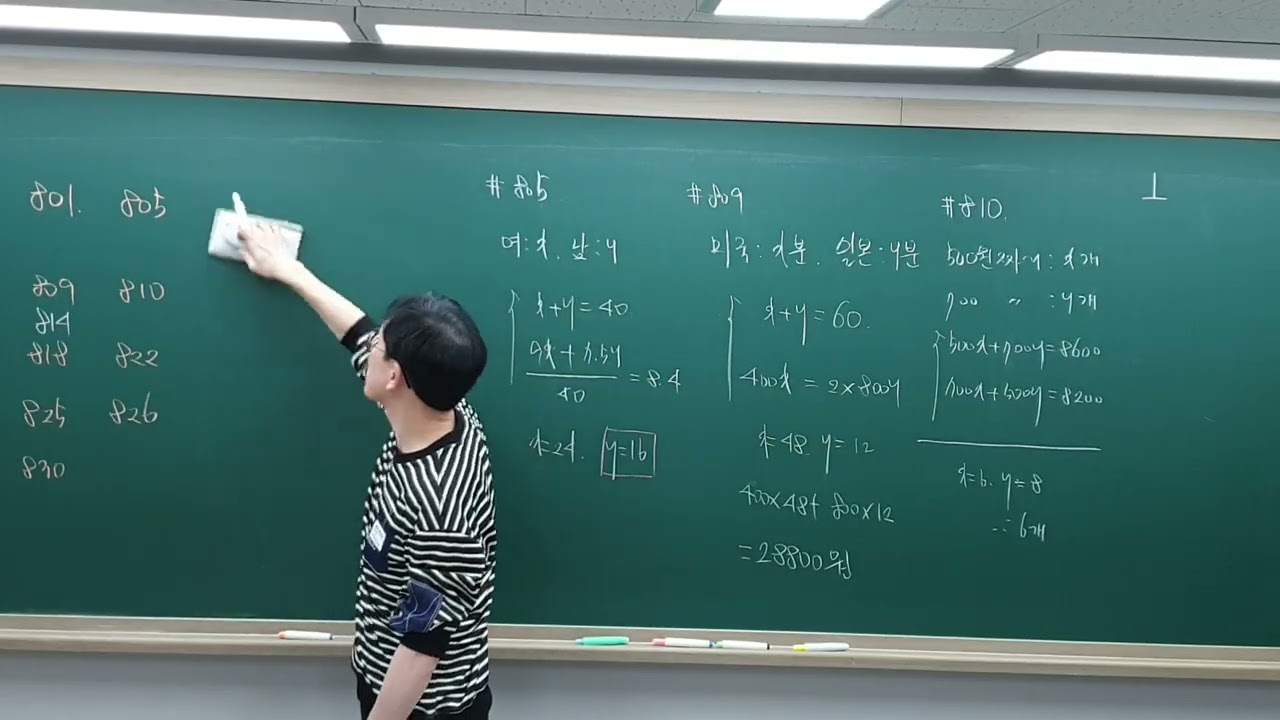 801. 805
809 810
814
818 822
825 826
830
#805
여:x. 남:y
x+y=40
9x+7.5y
40
=8.4
x=24. y=16
#809
미국:x분. 일본:y분
x+y=60.
400x=2×800y
x=48. y=12
400×48+800×12
=28800원
#810.
500원짜리:x개
700 〃 :y개
500x+700y=8600
700x+500y=8200
x=6. y=8
∴6개